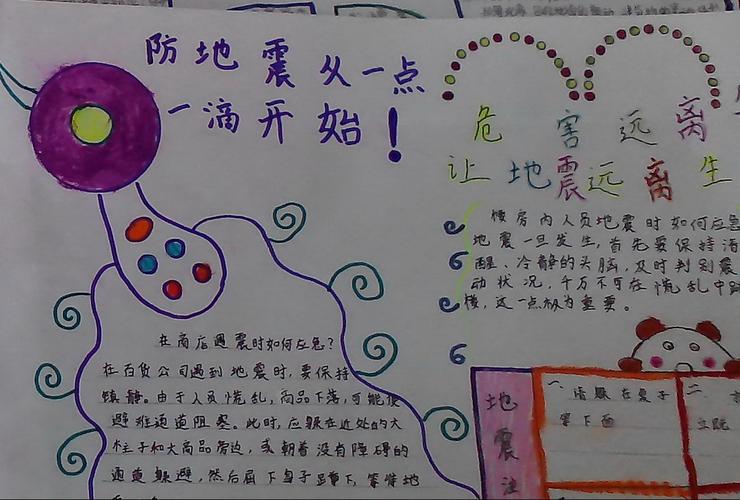 防地震从一点
一滴开始！
危害远离
让地震远离生
楼房内人员地震时如何应急
地震一旦发生，首先要保持清
醒、冷静的头脑，及时判别震
动状况，千万不可在慌乱中跳
楼，这一点极为重要。
在商店遇震时如何应急？
在百货公司遇到地震时，要保持
镇静。由于人员慌乱，商品下落，可能使
避难通道阻塞。此时，应躲在近处的大
柱子和大商品旁边，或朝着没有障碍的
通道躲避，然后屈下身子蹲下，等待地
地震注
一、请躲在桌子
等下面
二、
立即